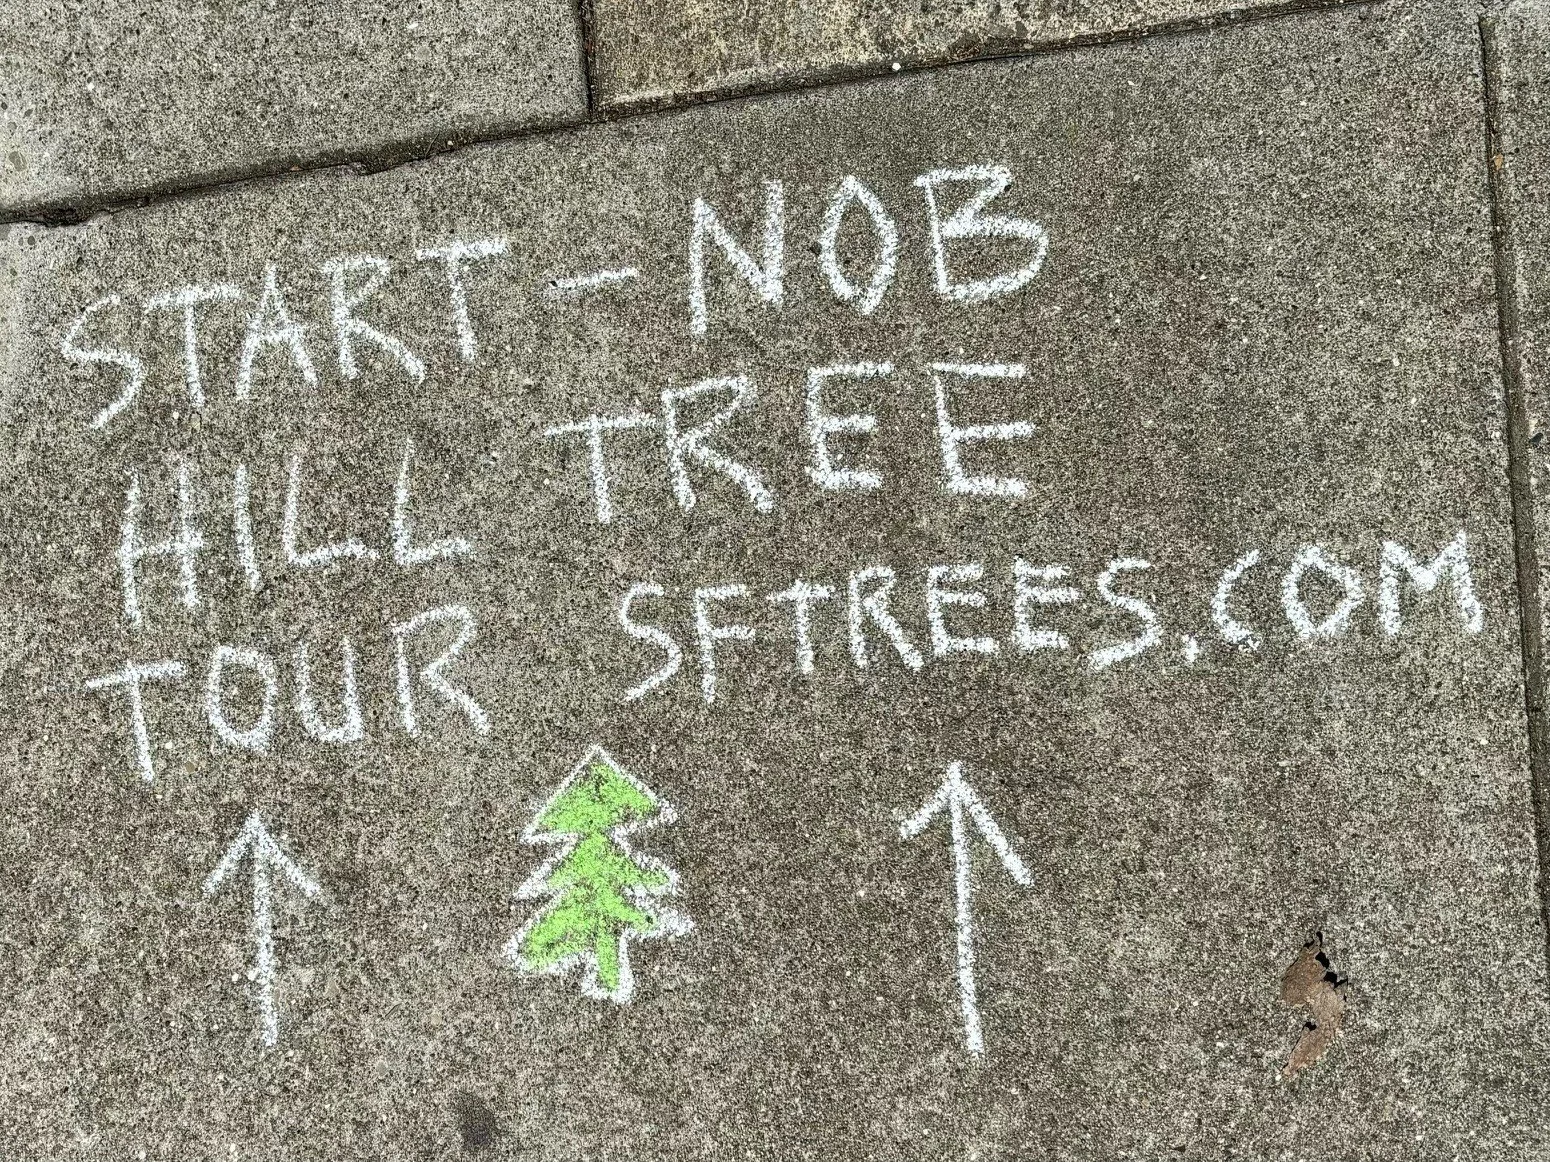 START - NOB
HILL TREE
TOUR SFTREES.COM